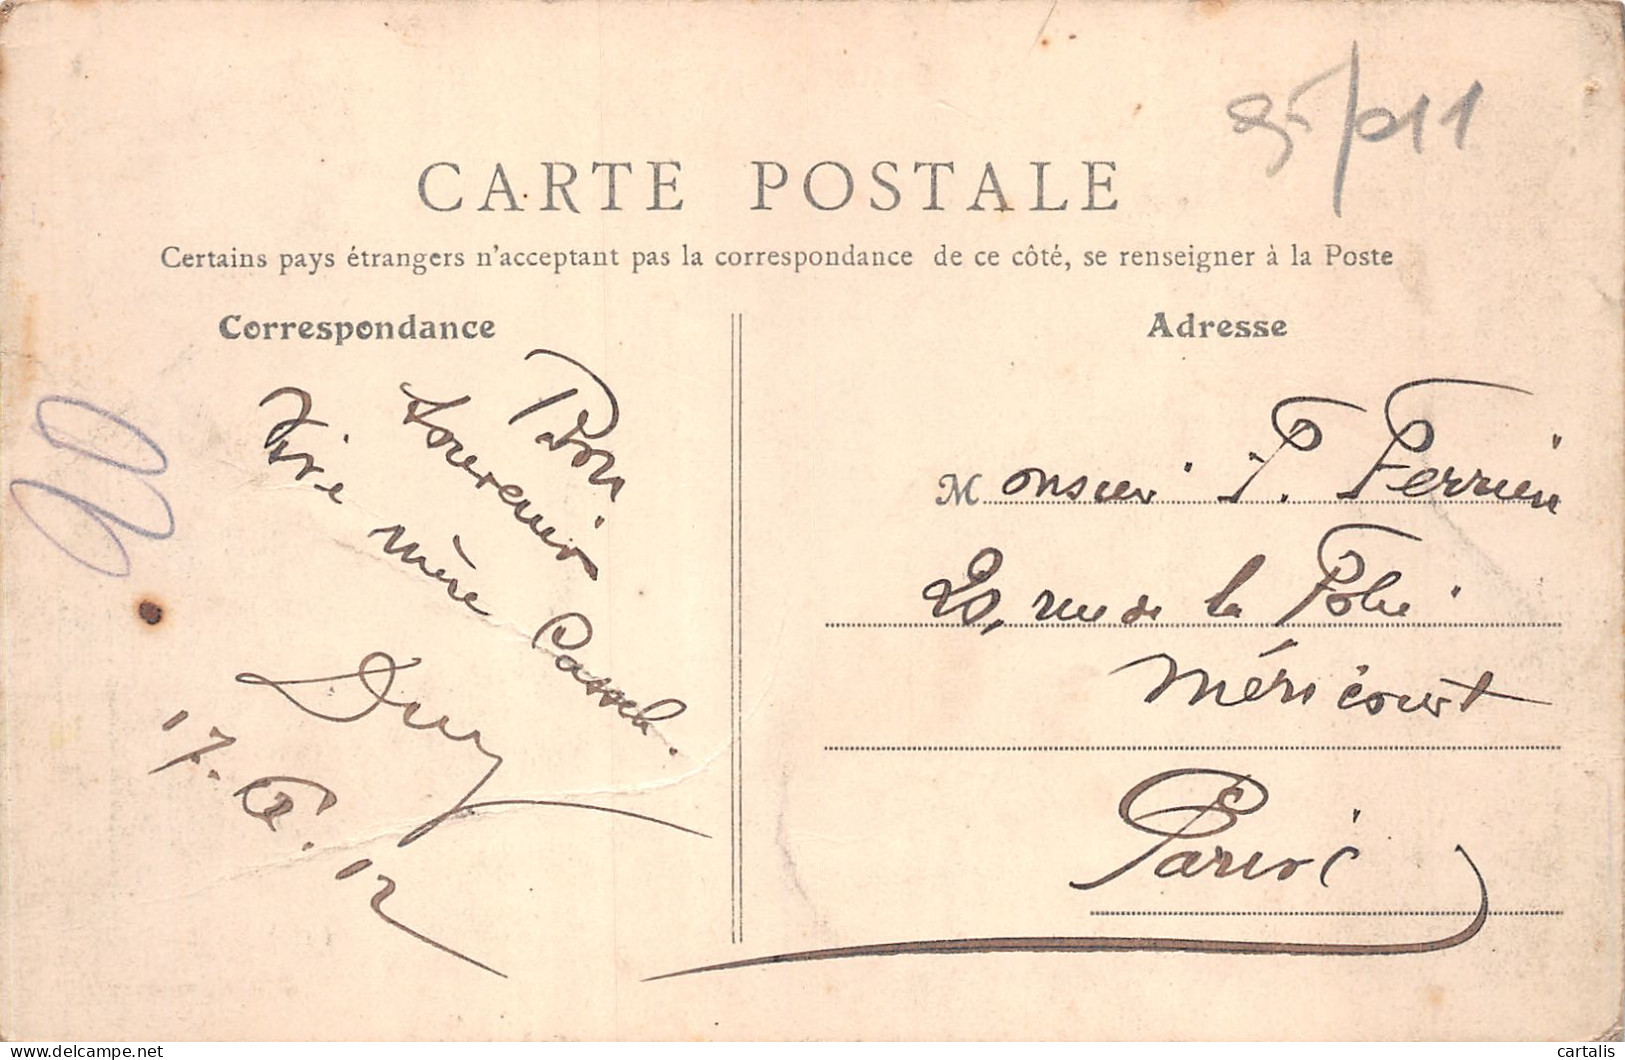 95/011
CARTE POSTALE
Certains pays étrangers n'acceptant pas la correspondance de ce côté, se renseigner à la Poste
Correspondance
Bon
souvenir
mère
17. 12
20
Adresse
Monsieur P. Ferrière
20, rue de la Folie
Méricourt
Paris
delcampe.net
cartalis